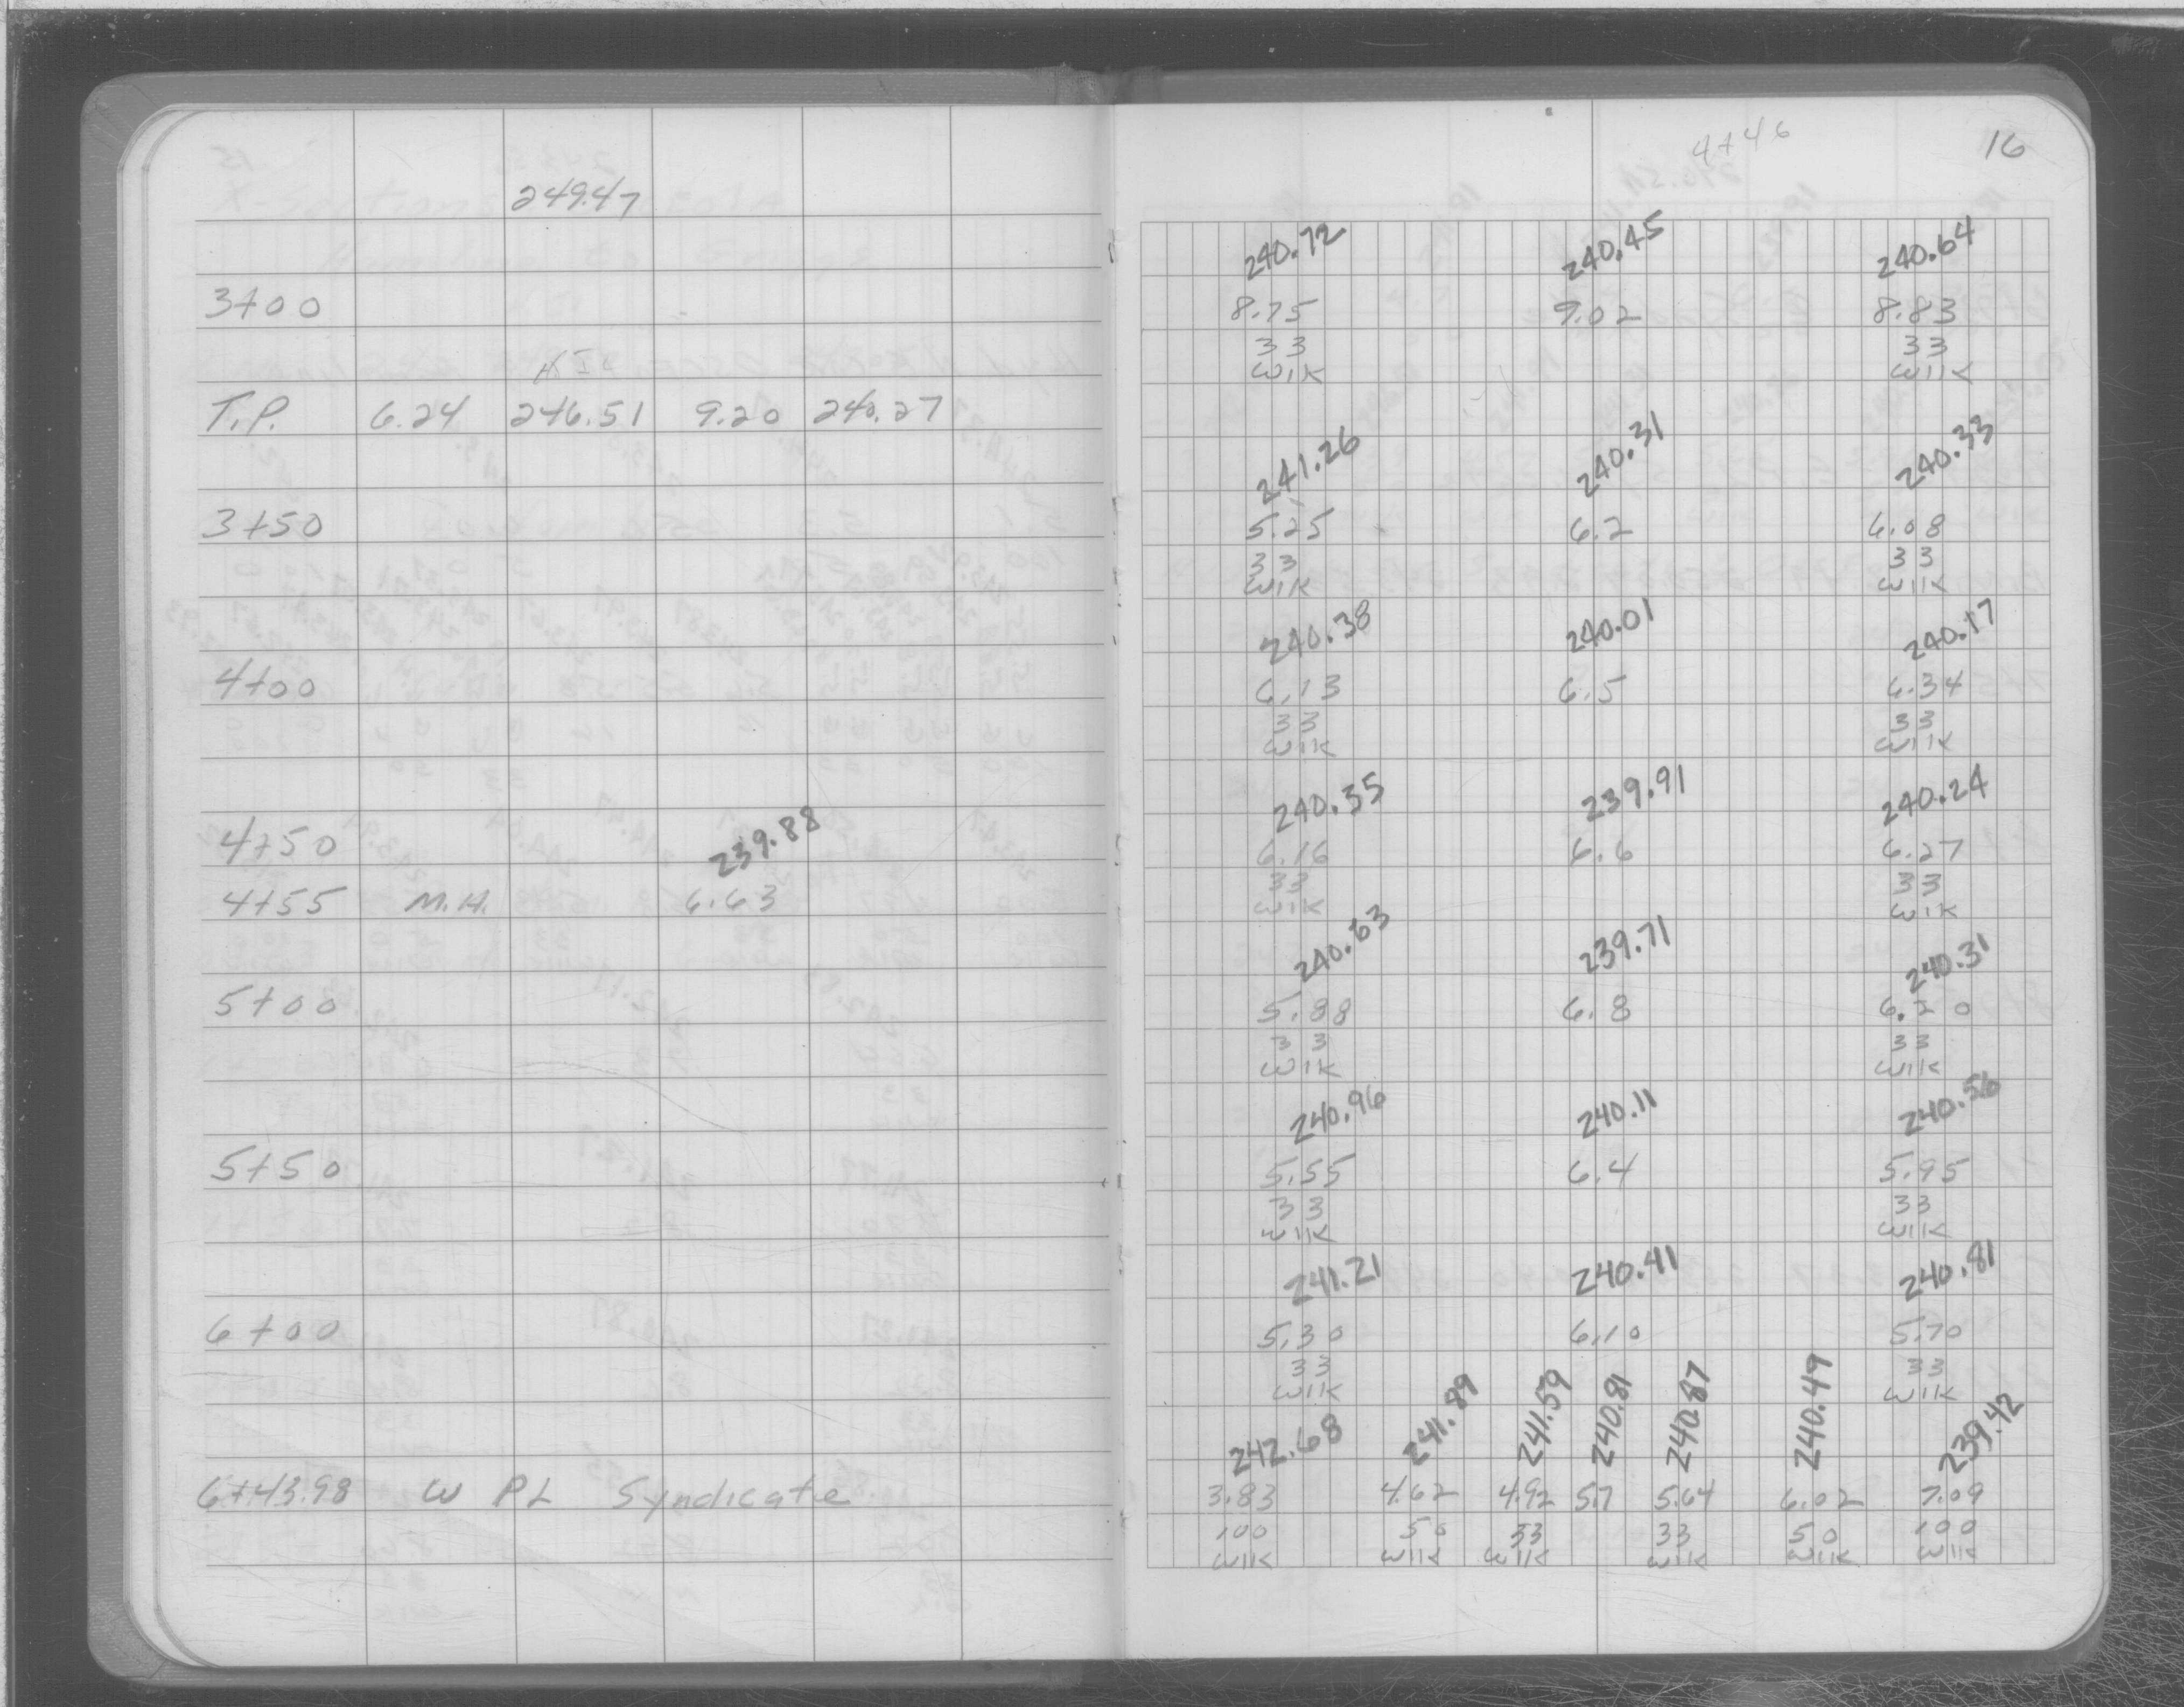 4+46 16
249.47
240.72 240.45 240.64
3+00 8.75 9.02 8.83
33 33
Wlk Wlk
H I
T.P. 6.24 246.51 9.20 240.27
241.26 240.31 240.33
3+50 5.25 6.2 6.08
33 33
Wlk Wlk
240.38 240.01 240.17
4+00 6.13 6.5 6.34
33 33
Wlk Wlk
240.35 239.91 240.24
4+50 6.16 6.6 6.27
239.88
33 33
4+55 M.H. 6.63 Wlk Wlk
240.63 239.71 240.31
5+00 5.88 6.8 6.20
33 33
Wlk Wlk
240.96 240.11 240.56
5+50 5.55 6.4 5.95
33 33
Wlk Wlk
241.21 240.41 240.81
6+00 5.30 6.10 5.70
33 33
Wlk Wlk
242.68 241.89 241.59 240.81 240.87 240.49 239.42
6+43.98 W PL Syndicate 3.83 4.62 4.92 5.7 5.64 6.02 7.09
100 50 33 33 50 100
Wlk Wlk Wlk Wlk Wlk Wlk